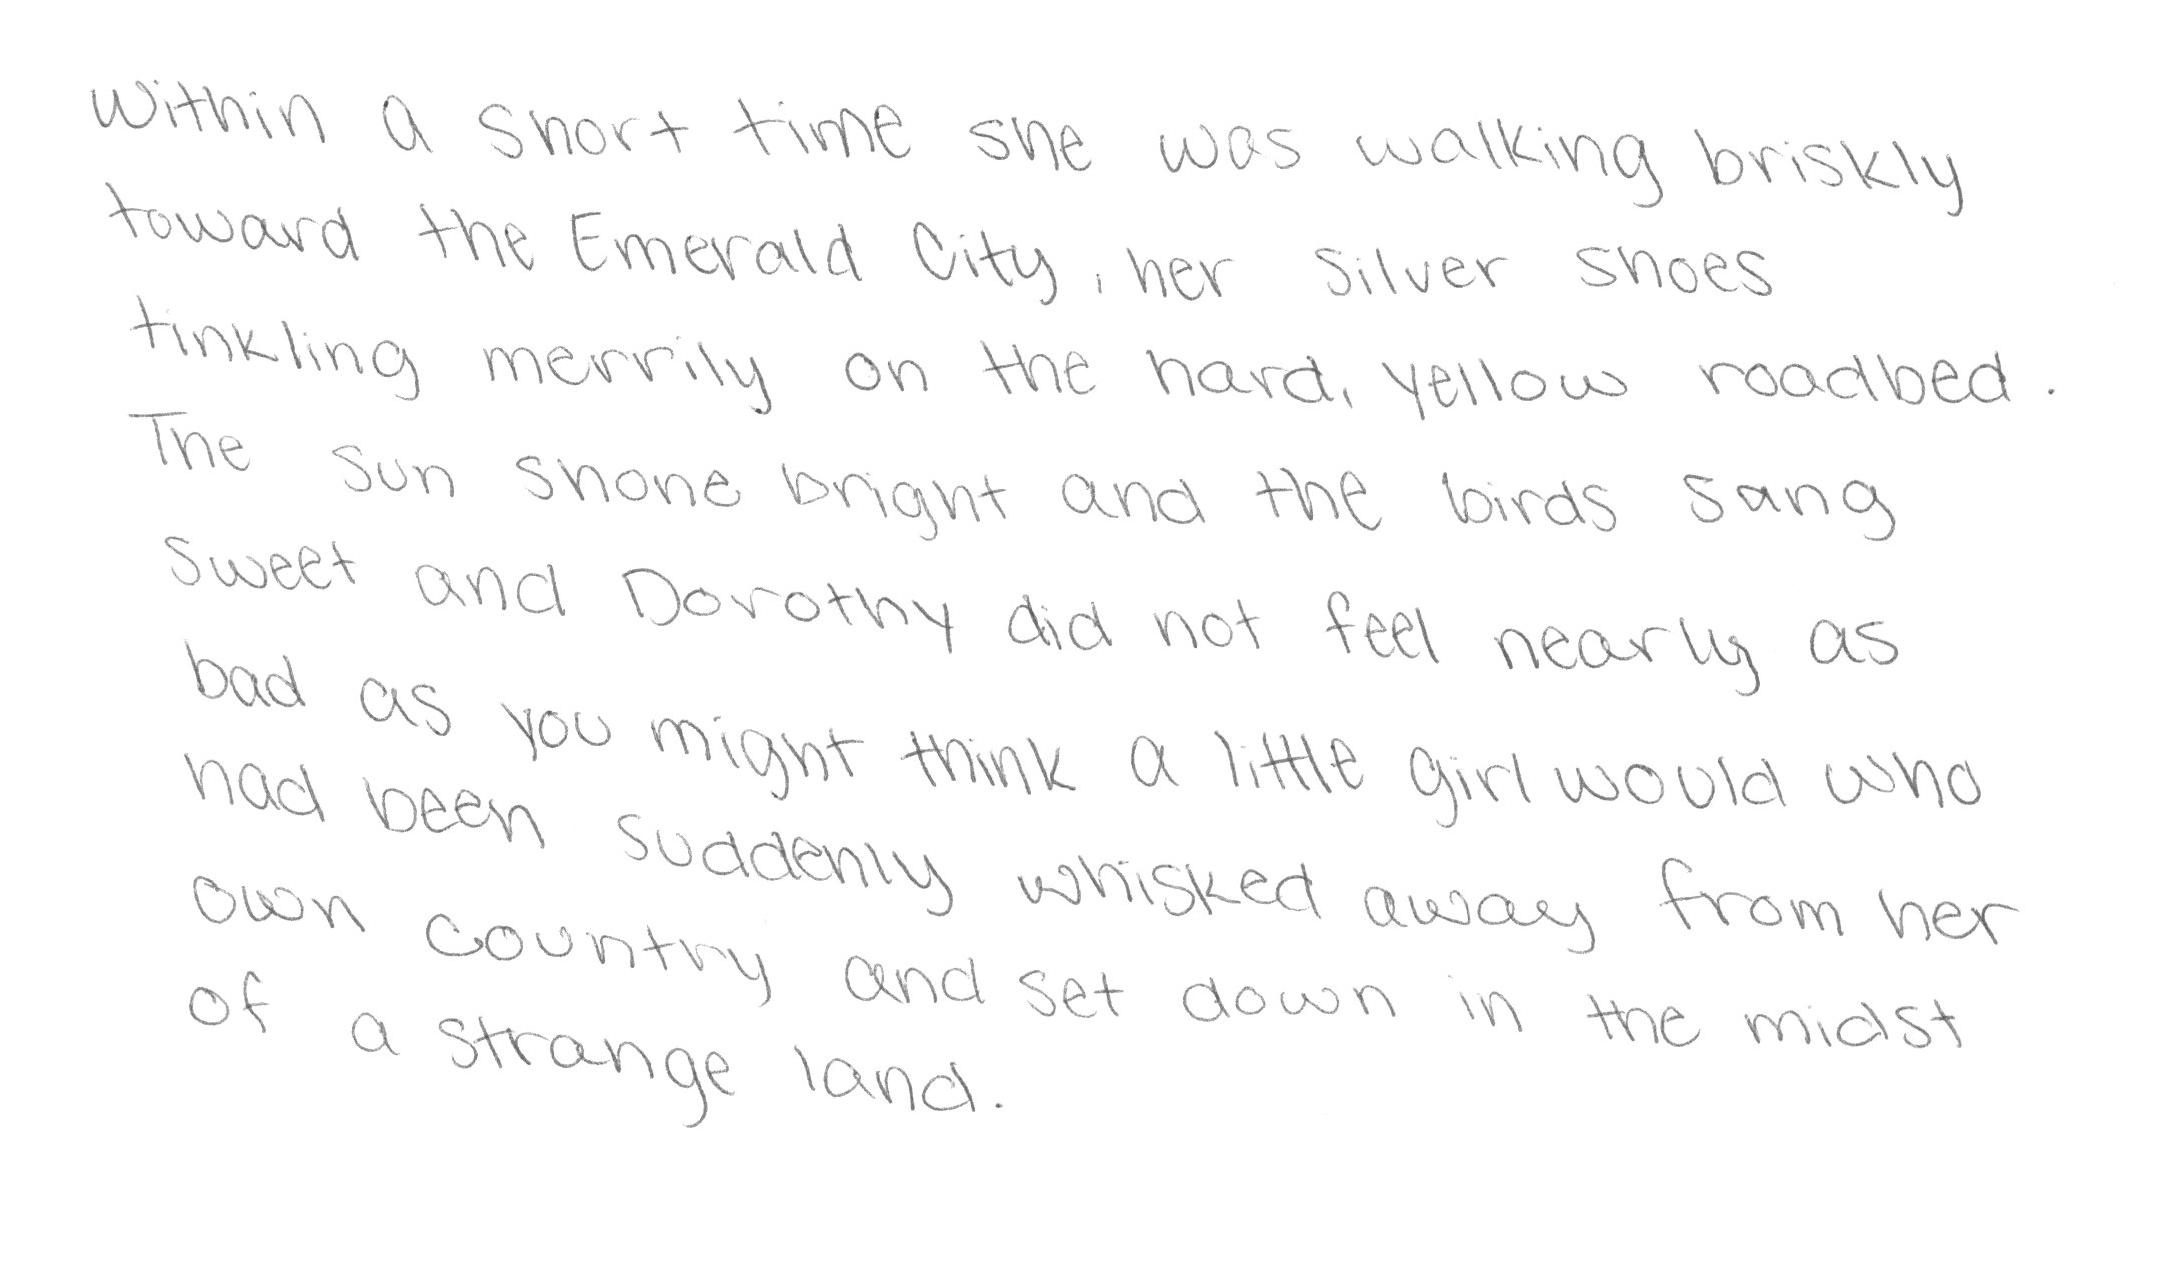 Within a short time she was walking briskly
toward the Emerald City, her Silver shoes
tinkling merrily on the hard, yellow roadbed.
The sun shone bright and the birds sang
sweet and Dorothy did not feel nearly as
bad as you might think a little girl would who
had been suddenly whisked away from her
own country and set down in the midst
of a strange land.